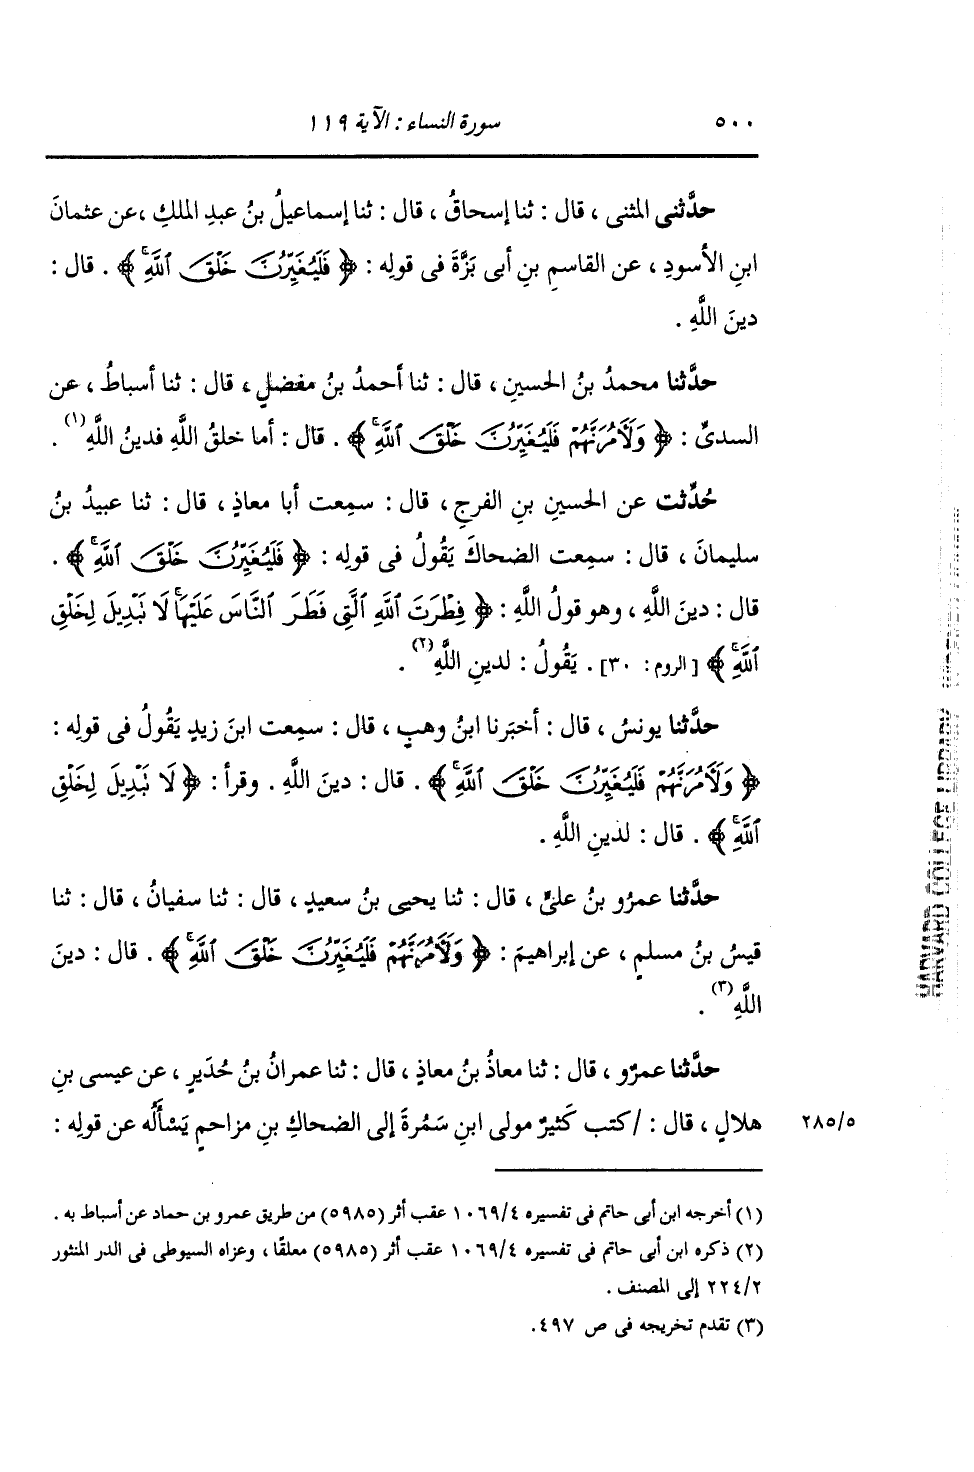 ٥٠٠ سورة النساء : الآية ١١٩
حدَّثنى المثنى ، قال : ثنا إسحاقُ ، قال : ثنا إسماعيلُ بنُ عبدِ الملكِ ، عن عثمانَ
ابنِ الأسودِ ، عن القاسمِ بنِ أبى بَزَّةَ فى قولِه : ﴿ فَلَيُغَيِّرُنَّ خَلْقَ ٱللَّهِۚ ﴾ . قال :
دينَ اللَّهِ .
حدَّثنا محمدُ بنُ الحسينِ ، قال : ثنا أحمدُ بنُ مفضلٍ ، قال : ثنا أسباطُ ، عن
السدىِّ : ﴿ وَلَآمُرَنَّهُمْ فَلَيُغَيِّرُنَّ خَلْقَ ٱللَّهِۚ ﴾ . قال : أما خلقُ اللَّهِ فدينُ اللَّهِ (١) .
حُدِّثت عن الحسينِ بنِ الفرجِ ، قال : سمِعت أبا معاذٍ ، قال : ثنا عبيدُ بنُ
سليمانَ ، قال : سمِعت الضحاكَ يَقُولُ فى قولِه : ﴿ فَلَيُغَيِّرُنَّ خَلْقَ ٱللَّهِۚ ﴾ .
قال : دينَ اللَّهِ ، وهو قولُ اللَّهِ : ﴿ فِطْرَتَ ٱللَّهِ ٱلَّتِى فَطَرَ ٱلنَّاسَ عَلَيْهَاۚ لَا تَبْدِيلَ لِخَلْقِ
ٱللَّهِۚ ﴾ [الروم : ٣٠] . يَقُولُ : لدينِ اللَّهِ (٢) .
حدَّثنا يونسُ ، قال : أخبَرنا ابنُ وهبٍ ، قال : سمِعت ابنَ زيدٍ يَقُولُ فى قولِه :
﴿ وَلَآمُرَنَّهُمْ فَلَيُغَيِّرُنَّ خَلْقَ ٱللَّهِۚ ﴾ . قال : دينَ اللَّهِ . وقرأ : ﴿ لَا تَبْدِيلَ لِخَلْقِ
ٱللَّهِۚ ﴾ . قال : لدينِ اللَّهِ .
حدَّثنا عمرُو بنُ علىٍّ ، قال : ثنا يحيى بنُ سعيدٍ ، قال : ثنا سفيانُ ، قال : ثنا
قيسُ بنُ مسلمٍ ، عن إبراهيمَ : ﴿ وَلَآمُرَنَّهُمْ فَلَيُغَيِّرُنَّ خَلْقَ ٱللَّهِۚ ﴾ . قال : دينَ
اللَّهِ (٣) .
حدَّثنا عمرٌو ، قال : ثنا معاذُ بنُ معاذٍ ، قال : ثنا عمرانُ بنُ حُدَيرٍ ، عن عيسى بنِ
٢٨٥/٥ هلالٍ ، قال : /كتب كَثيرٌ مولى ابنِ سَمُرةَ إلى الضحاكِ بنِ مزاحمٍ يَسْأَلُه عن قولِه :
(١) أخرجه ابن أبى حاتم فى تفسيره ١٠٦٩/٤ عقب أثر (٥٩٨٥) من طريق عمرو بن حماد عن أسباط به .
(٢) ذكره ابن أبى حاتم فى تفسيره ١٠٦٩/٤ عقب أثر (٥٩٨٥) معلقا ، وعزاه السيوطى فى الدر المنثور
٢٢٤/٢ إلى المصنف .
(٣) تقدم تخريجه فى ص ٤٩٧.
HARVARD COLLEGE LIBRARY